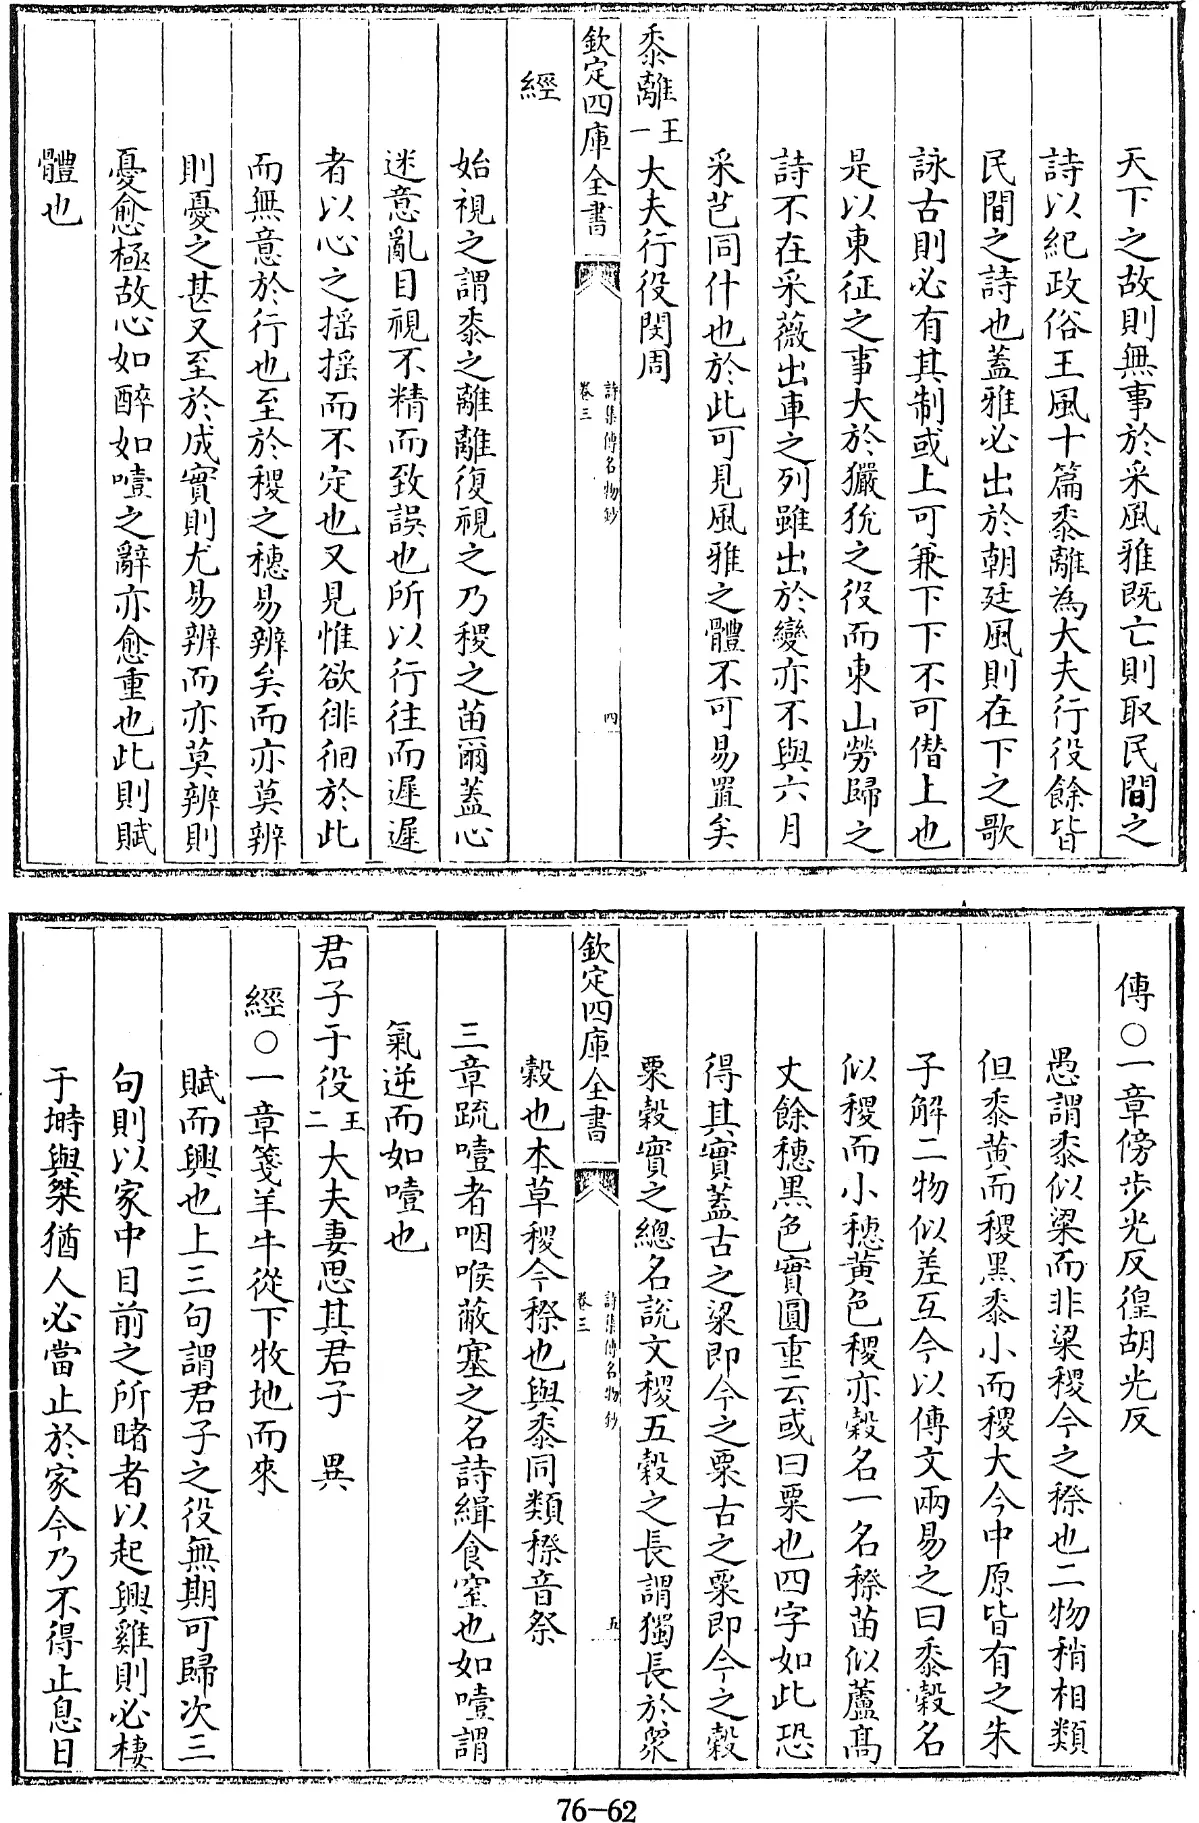 天下之故則無事於采風雅既亡則取民間之
詩以紀政俗王風十篇黍離為大夫行役餘皆
民間之詩也蓋雅必出於朝廷風則在下之歌
詠古則必有其制或上可兼下下不可僭上也
是以東征之事大於玁狁之役而東山勞歸之
詩不在采薇出車之列雖出於變亦不與六月
采芑同什也於此可見風雅之體不可易置矣
黍離王一大夫行役閔周
欽定四庫全書 詩集傳名物鈔 卷三 四
經
始視之謂黍之離離復視之乃稷之苗爾蓋心
迷意亂目視不精而致誤也所以行往而遲遲
者以心之搖搖而不定也又見惟欲徘徊於此
而無意於行也至於稷之穗易辨矣而亦莫辨
則憂之甚又至於成實則尤易辨而亦莫辨則
憂愈極故心如醉如噎之辭亦愈重也此則賦
體也
傳○一章傍步光反徨胡光反
愚謂黍似梁而非梁稷今之穄也二物稍相類
但黍黄而稷黑黍小而稷大今中原皆有之朱
子解二物似差互今以傳文兩易之曰黍穀名
似稷而小穗黄色稷亦穀名一名穄苗似蘆高
丈餘穗黒色實圓重云或曰粟也四字如此恐
得其實蓋古之粱即今之粟古之粟即今之穀
粟穀實之總名說文稷五穀之長謂獨長於衆
欽定四庫全書 詩集傳名物鈔 卷三 五
穀也本草稷今穄也與黍同類穄音祭
三章疏噎者咽喉蔽塞之名詩緝食窒也如噎謂
氣逆而如噎也
君子于役王二大夫妻思其君子 異
經○一章箋羊牛從下牧地而來
賦而興也上三句謂君子之役無期可歸次三
句則以家中目前之所睹者以起興雞則必棲
于塒與桀猶人必當止於家今乃不得止息日
76-62